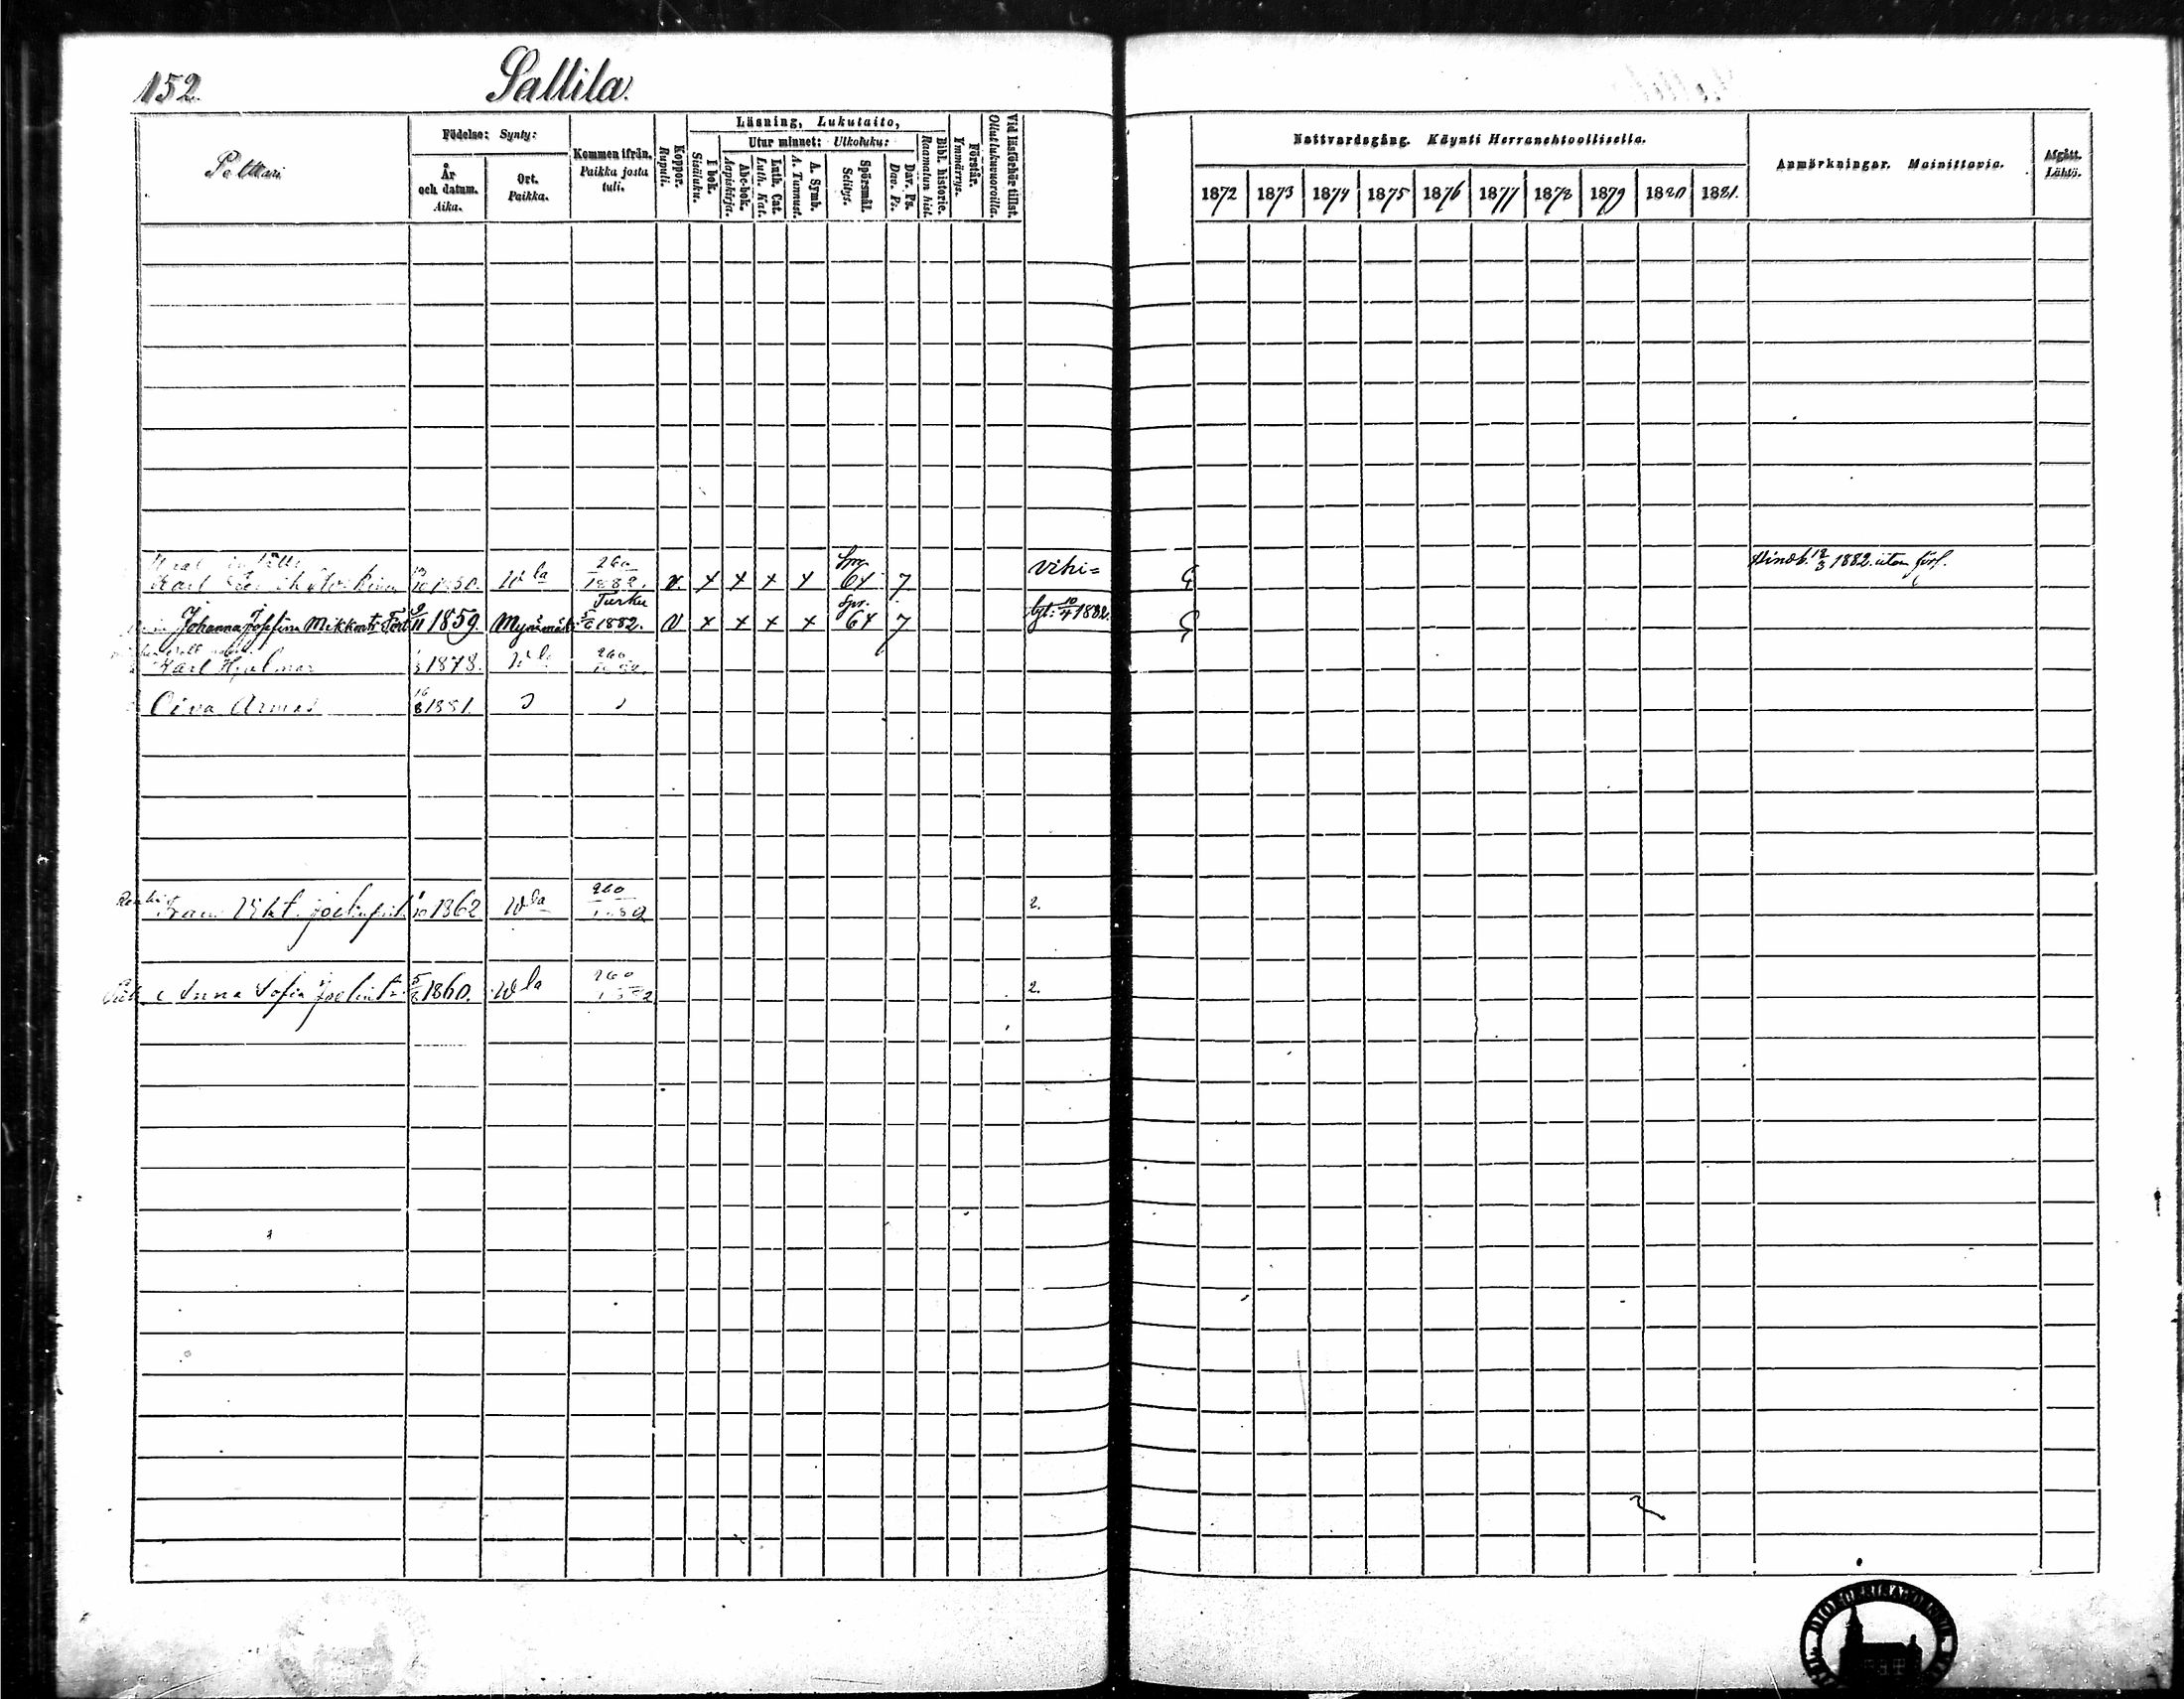 152.
Sallila.
Peltari
Födelse: Synty:
År och datum. Aika.
Ort. Paikka.
Kommen ifrån. Paikka josta tuli.
Koppor. Rupuli.
Läsning, Lukutaito,
I bok. Sisäluku.
Utur minnet: Ulkoluku:
Abc-bok. Aapiskirja.
Luth. Cat. Luth. Kat.
A. Symb. A. Tunnust.
Spörsmål. Selitys.
Dav. Ps. Dav. Ps.
Bibl. historie. Raamatun hist.
Förstår. Ymmärrys.
Vid läsförhör tillst. Ollut lukuvuoroilla.
Nattvardsgång. Käynti Herranehtoollisella.
1872 1873 1874 1875 1876 1877 1878 1879 1880 1881.
Anmärkningar. Mainittavia.
Afgått. Lähtö.
Karl 1850. Wla 260 1882. v. x x x x Spr. 64 7 Vihi=
Hindb. 12/3 1882. utan förf.
Johanna Josefina Mikkont. 9/11 1859. Mynämäki Turku 5/6 1882. v x x x x Spr. 64 7 10/4 1882.
Karl Hjalmar 1878. Wla 260
Oiva Armas 16/8 1881.
Renki Frans Vikt. 1862 Wla 260 2.
Anna Sofia 1860. Wla 260 2.